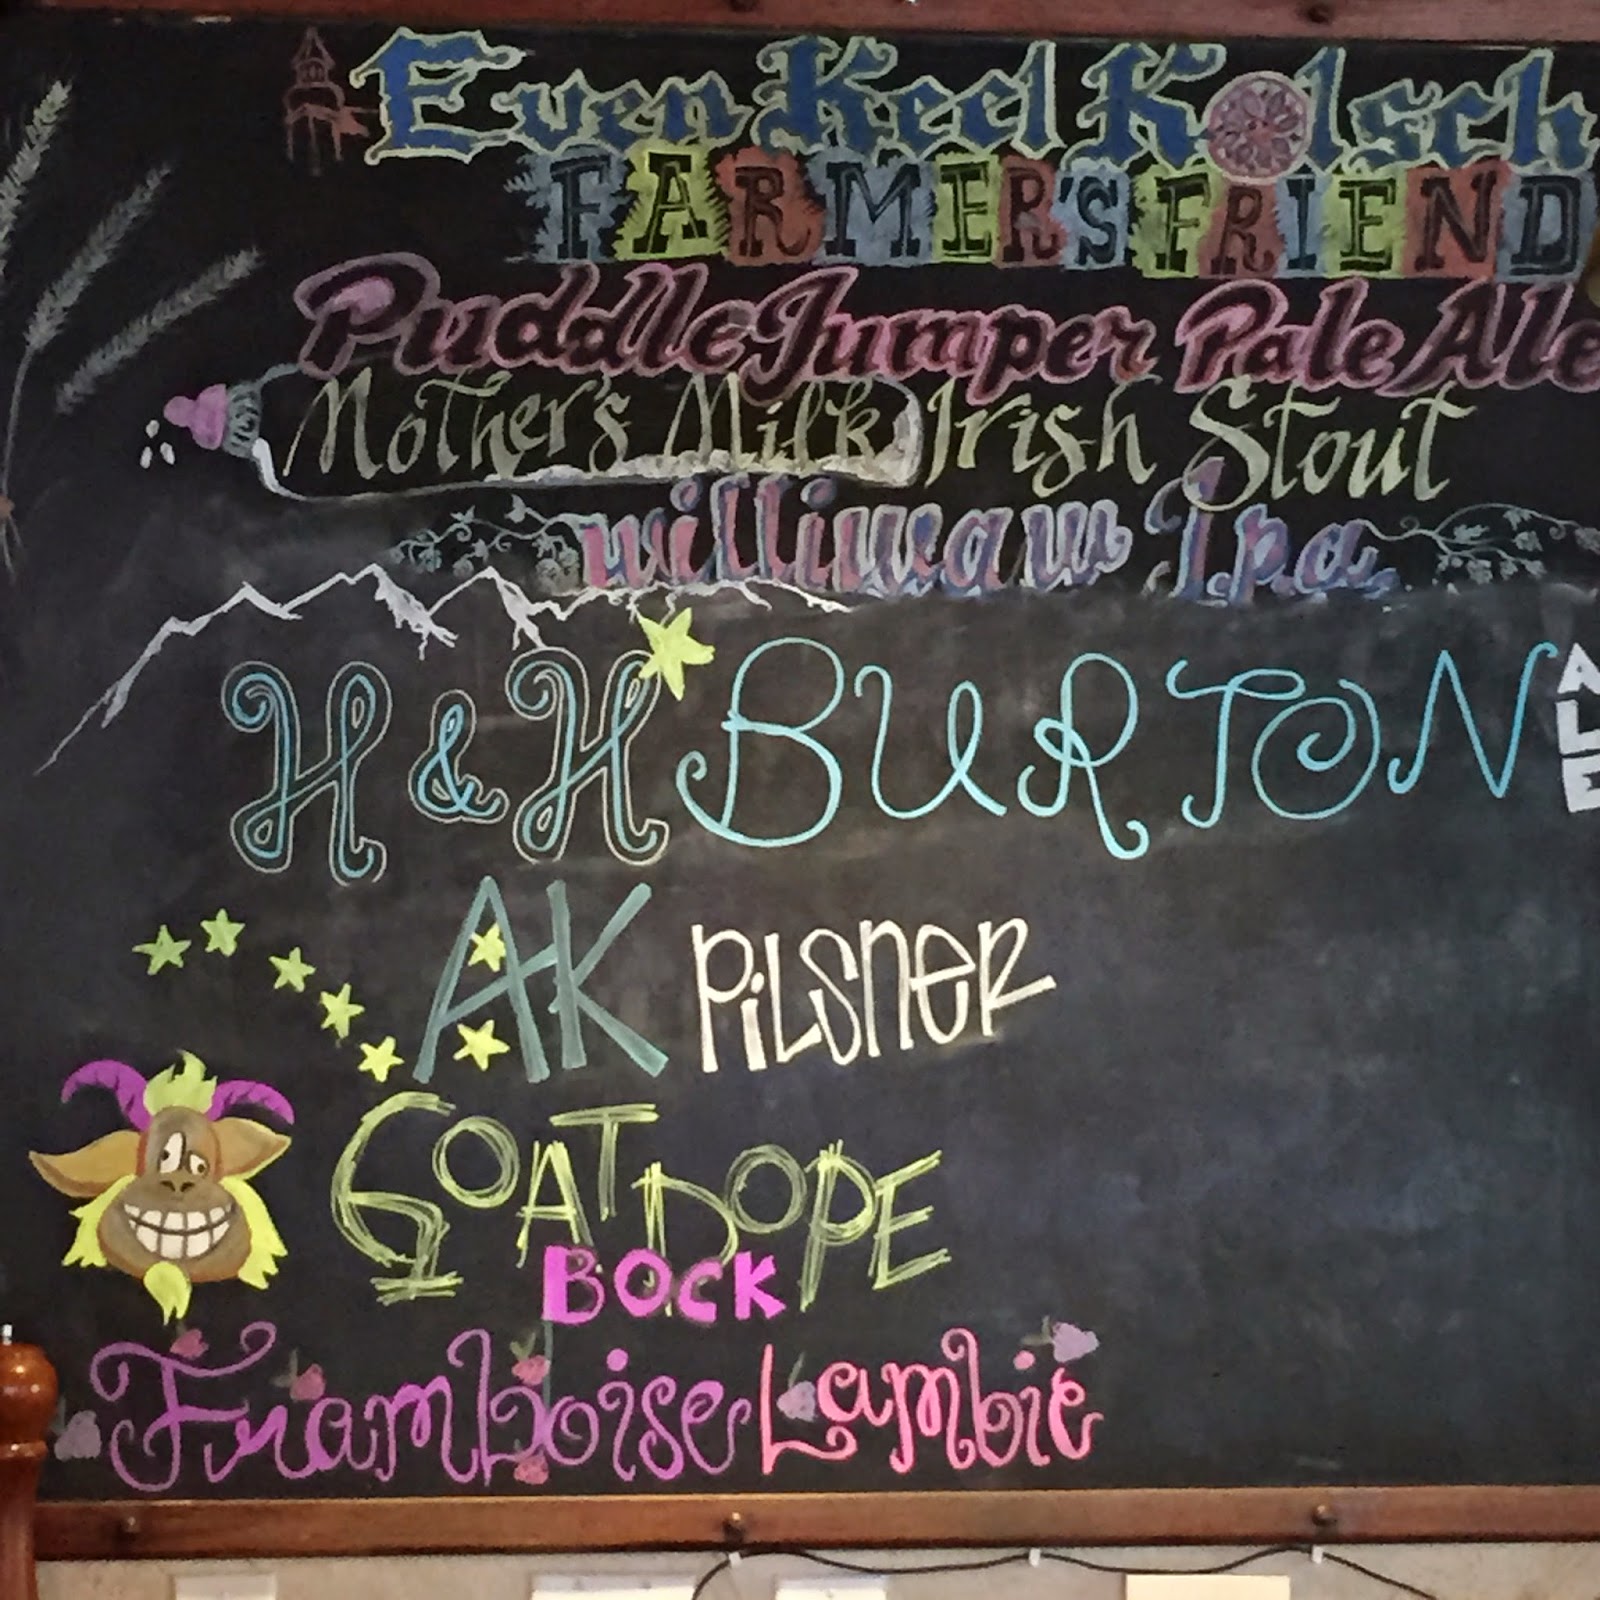 Even Keel Kolsch
FARMER'S FRIEND
Puddle Jumper Pale Ale
Mother's Milk Irish Stout
williwaw I.p.a.
H & H BURTON ALE
AK PiLSneR
GOAT DOPE
BOCK
Framboise Lambic